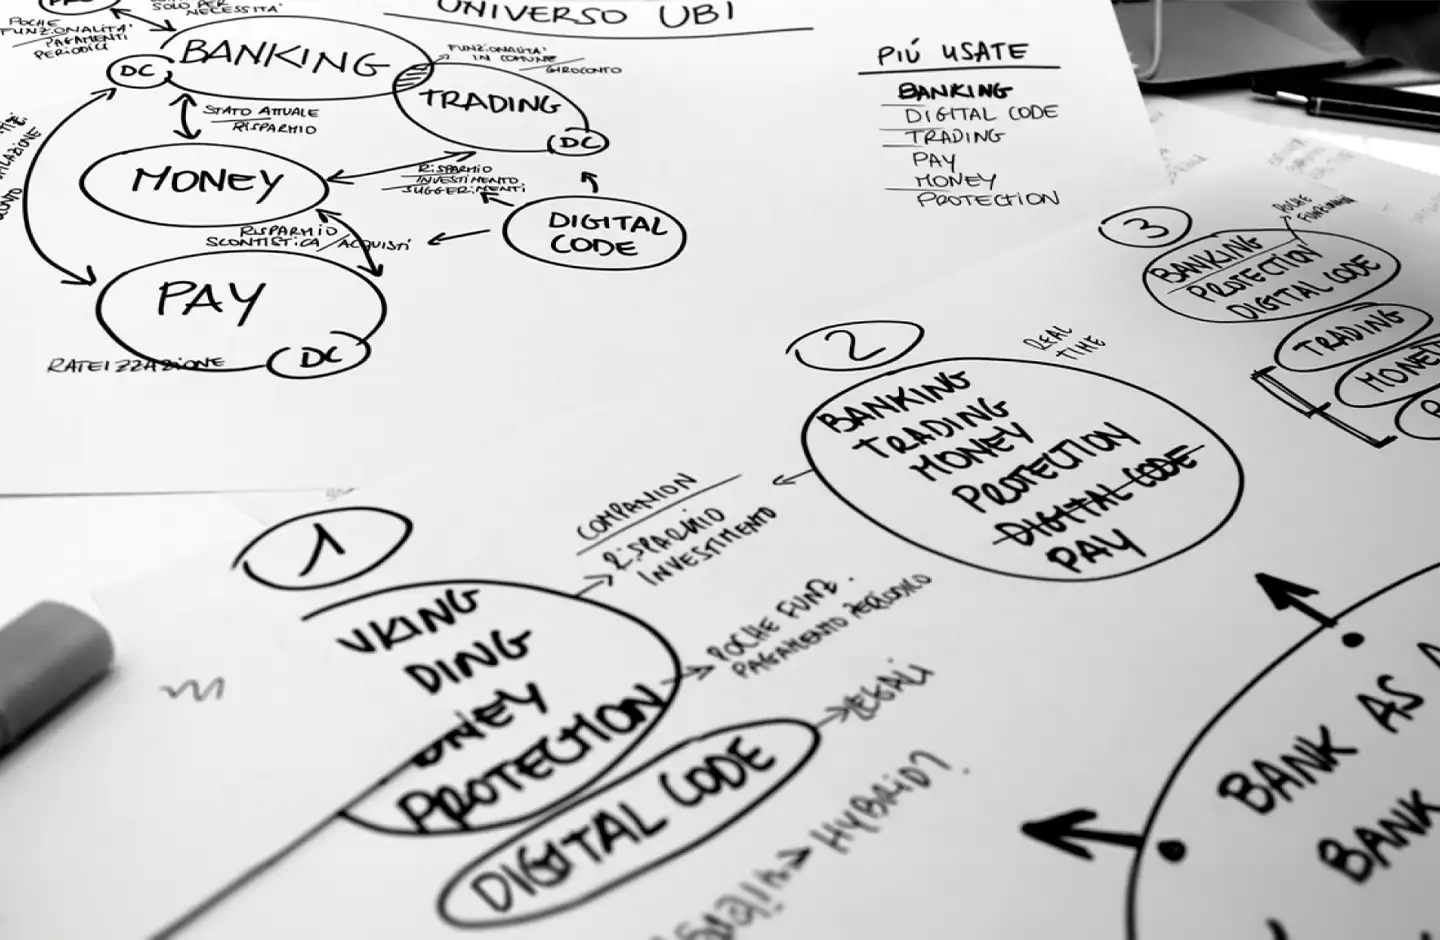 UNIVERSO UBI
SOLO PER
NECESSITA'
POCHE
FUNZIONALITA'
PAGAMENTI
PERIODICI
DC
BANKING
FUNZIONALITA'
IN COMUNE
GIROCONTO
TRADING
DC
STATO ATTUALE
RISPARMIO
MONEY
RISPARMIO
INVESTIMENTO
SUGGERIMENTI
DIGITAL
CODE
RISPARMIO
SCONTISTICA/ACQUISTI
PAY
RATEIZZAZIONE
DC
PIÚ USATE
BANKING
DIGITAL CODE
TRADING
PAY
MONEY
PROTECTION
3
POCHE
BANKING
PROTECTION
DIGITAL CODE
TRADING
MONEY
2
REAL
TIME
BANKING
TRADING
MONEY
PROTECTION
DIGITAL CODE
PAY
1
COMPANION
RISPARMIO
INVESTIMENTO
KING
DING
ONEY
PROTECTION
POCHE FUNZ.
PAGAMENTO PERIODICO
DIGITAL CODE
LEGALI
HYBRID?
BANK AS A
BANK